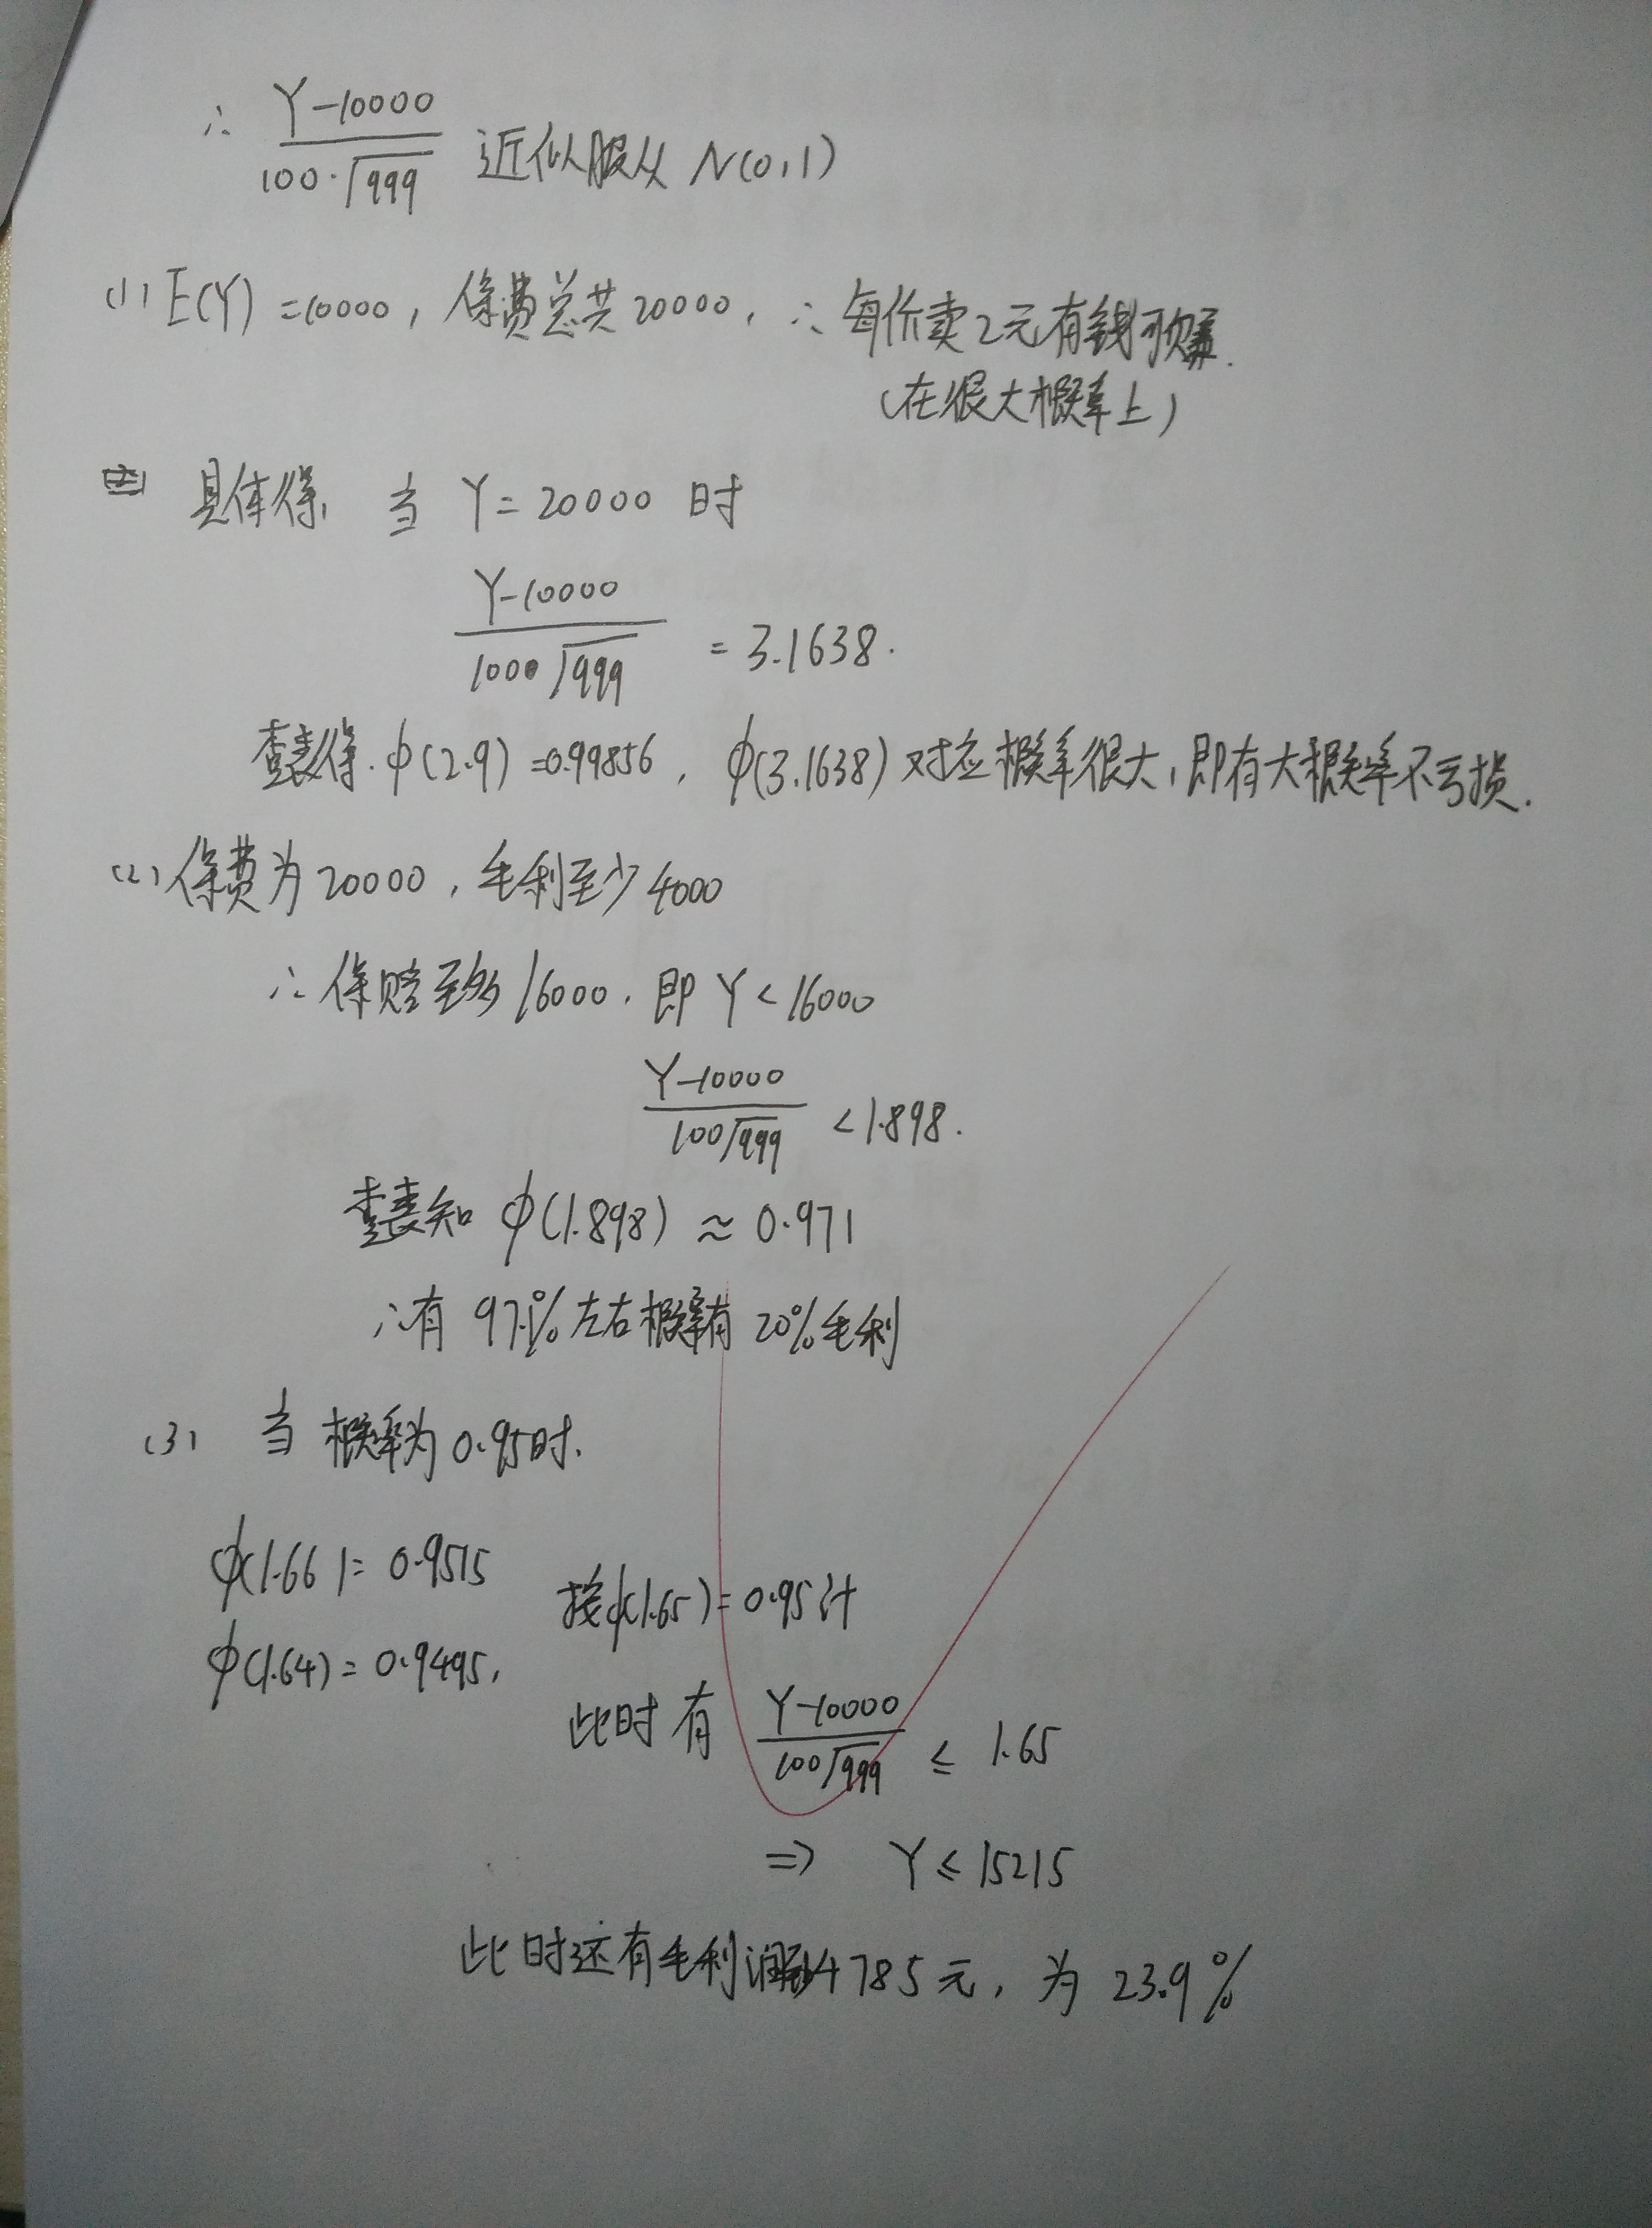 ∴ (Y-10000)/(100·√999) 近似服从 N(0,1)
(1) E(Y)=10000, 保费总共20000, ∴每份卖2元有钱可赚.
(在很大概率上)
具体得, 当 Y=20000 时
(Y-10000)/(1000√999) = 3.1638.
查表得. φ(2.9)=0.99856, φ(3.1638)对应概率很大,即有大概率不亏损.
(2) 保费为20000, 毛利至少4000
∴保赔至多16000, 即 Y<16000
(Y-10000)/(100√999) <1.898.
查表知 φ(1.898) ≈ 0.971
∴有 97.1%左右概率有 20%毛利
(3) 当 概率为0.95时.
φ(1.66)= 0.9515
按φ(1.65)=0.95计
φ(1.64)= 0.9495,
此时有 (Y-10000)/(100√999) ≤ 1.65
⇒ Y ≤ 15215
此时还有毛利润4785元, 为 23.9%